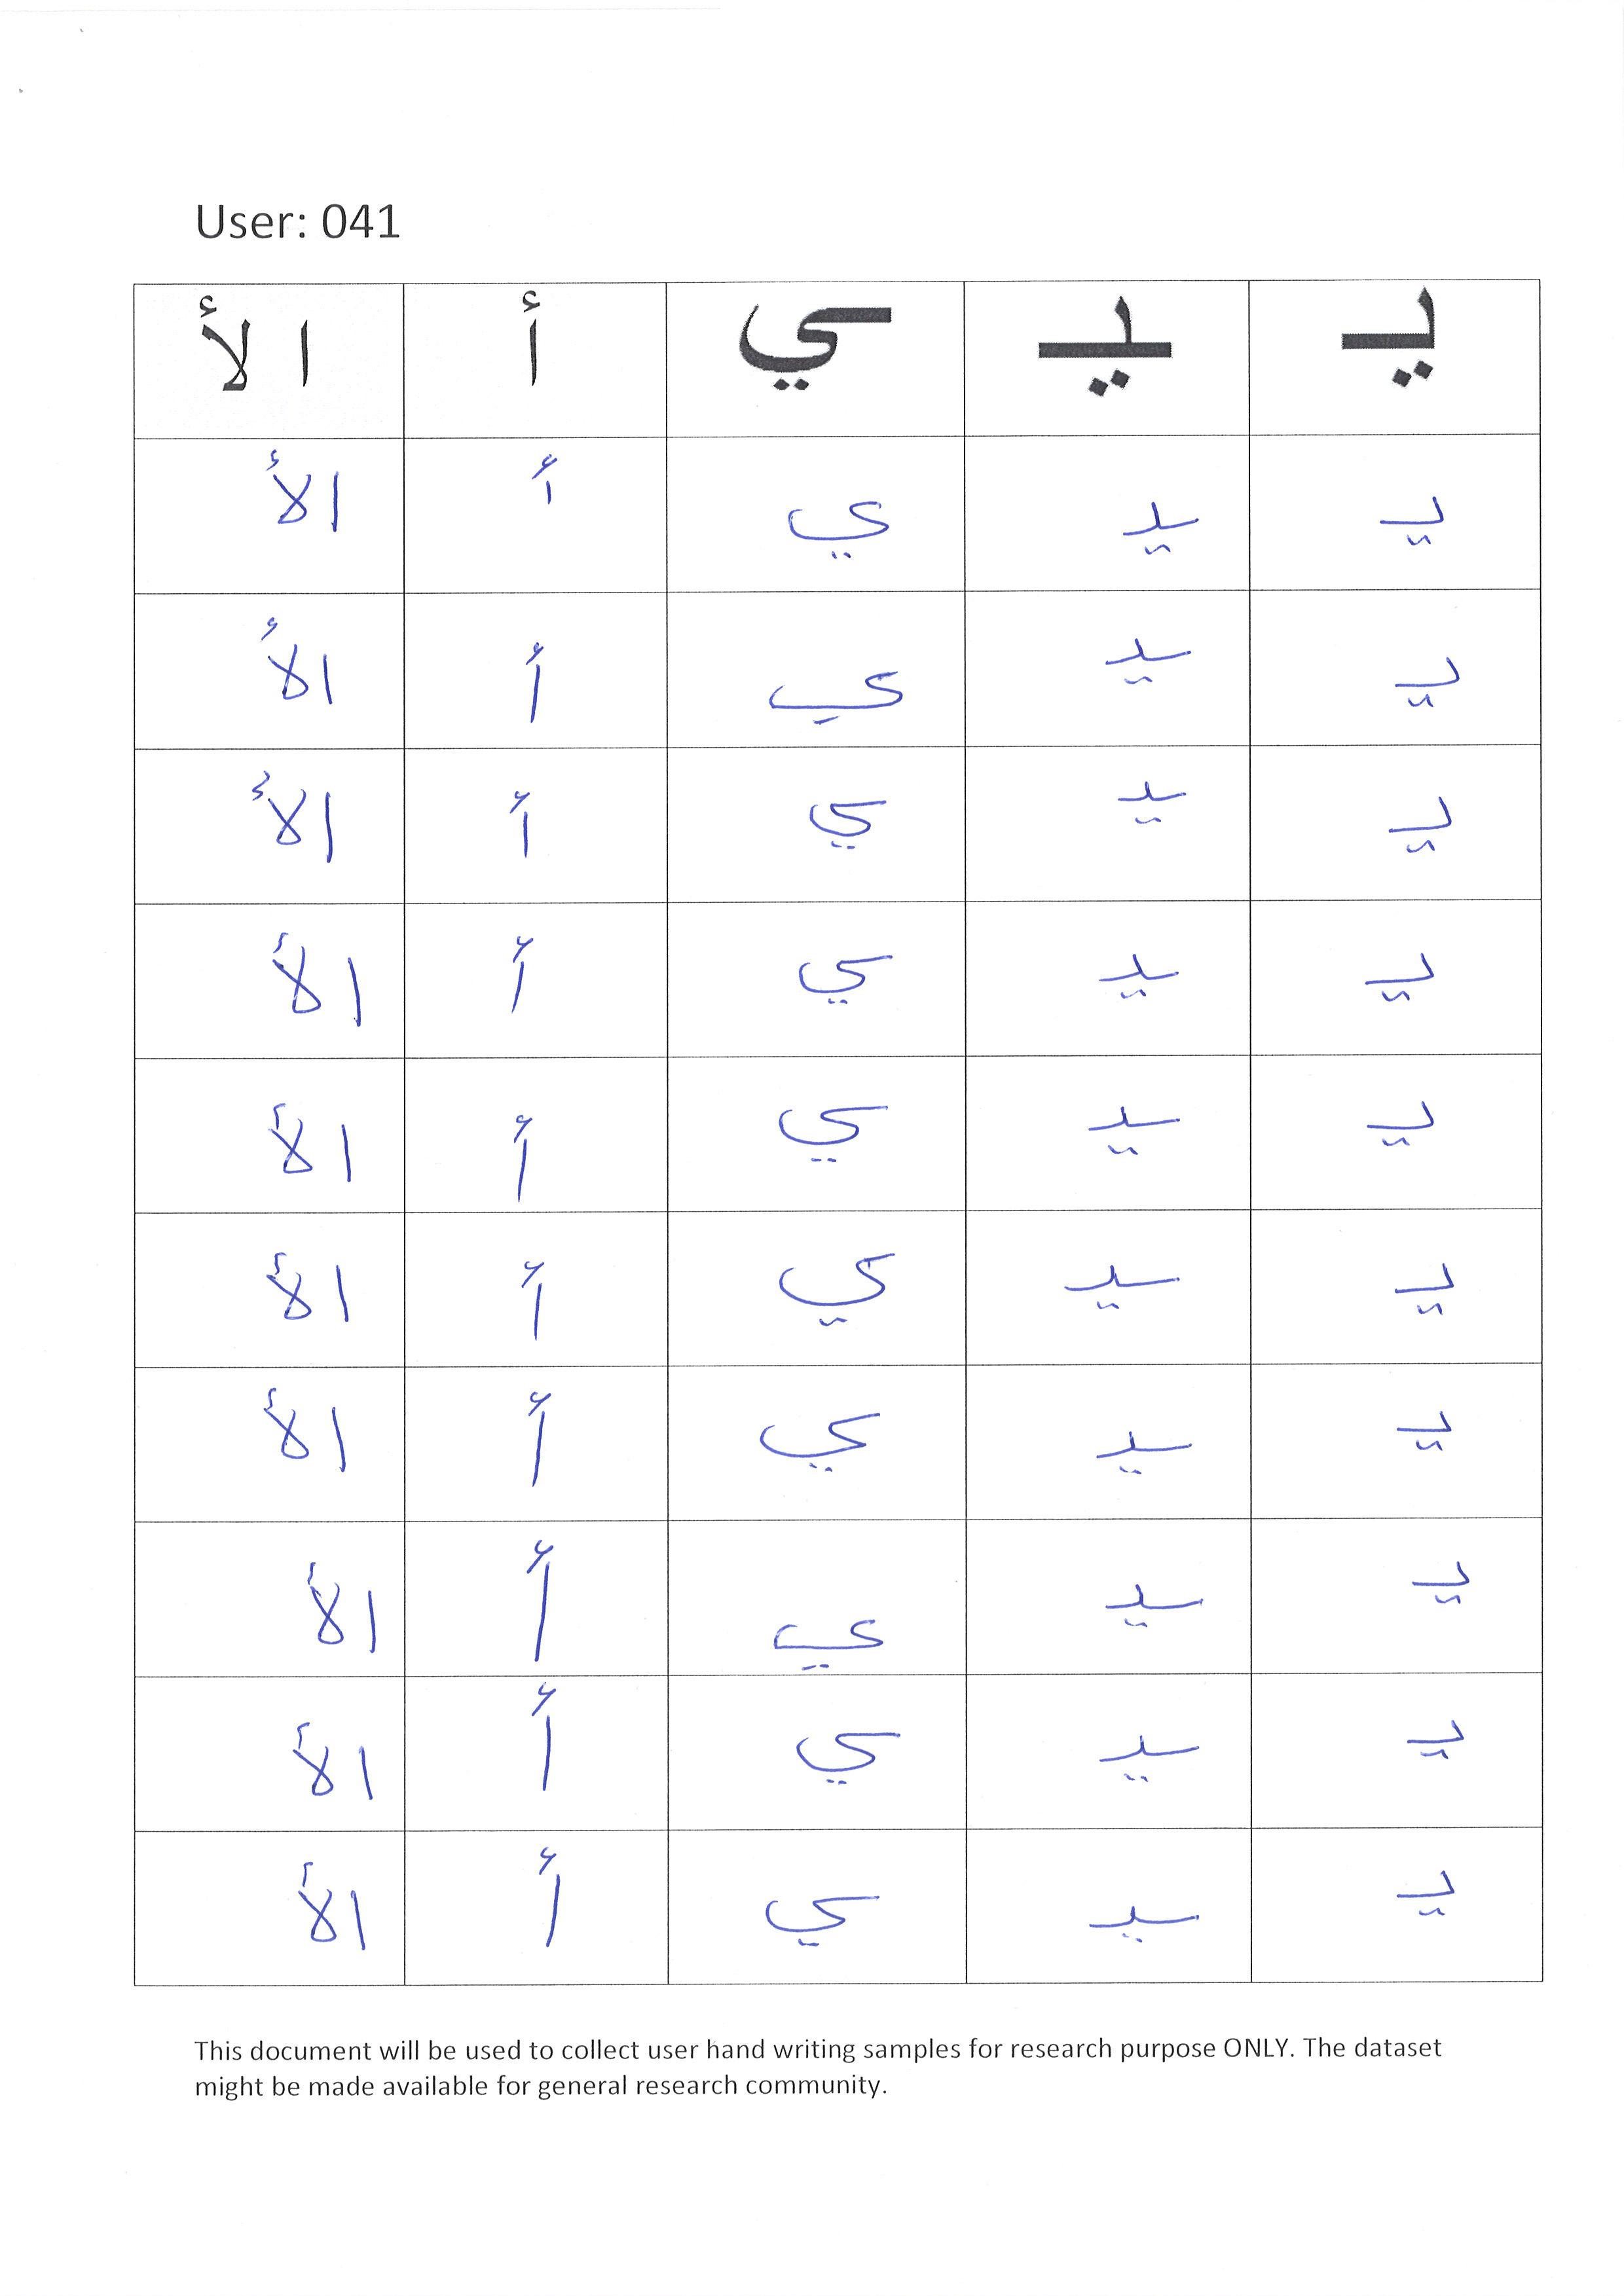 User: 041
يـ ـيـ ـي أ الأ
يـ ـيـ ي أ الأ
يـ ـيـ ي أ الأ
يـ ـيـ ـي أ الأ
يـ ـيـ ـي أ الأ
يـ ـيـ ـي أ الأ
يـ ـيـ ـي أ الأ
يـ ـيـ ـي أ الأ
يـ ـيـ ي أ الأ
يـ ـيـ ـي أ الأ
يـ ـيـ ـي أ الأ
This document will be used to collect user hand writing samples for research purpose ONLY. The dataset
might be made available for general research community.